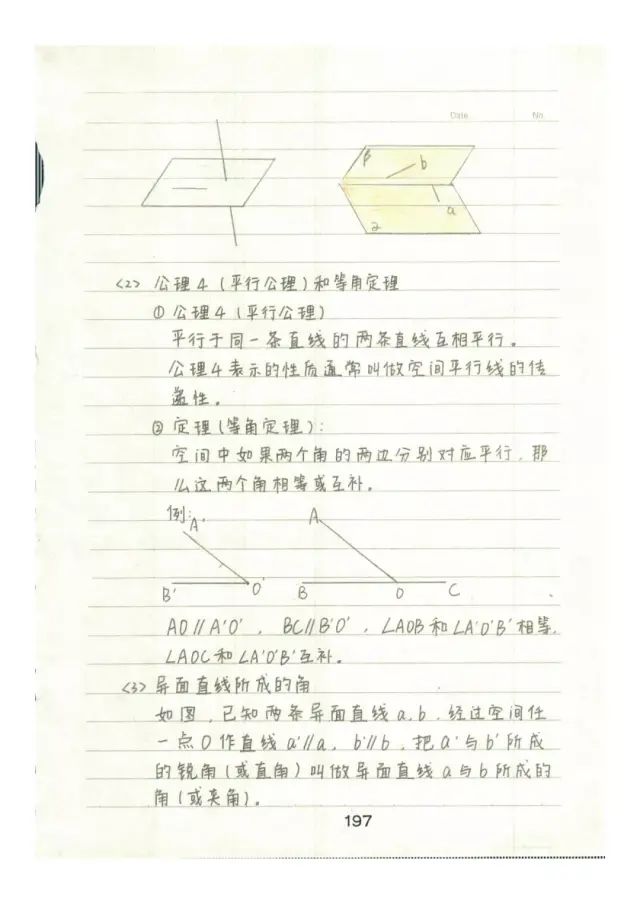 Date No
β b
a
2
<2> 公理4(平行公理)和等角定理
① 公理4(平行公理)
平行于同一条直线的两条直线互相平行。
公理4表示的性质通常叫做空间平行线的传
递性。
② 定理(等角定理):
空间中如果两个角的两边分别对应平行,那
么这两个角相等或互补。
例:
A' A
B' O' B O C
AO∥A'O',BC∥B'O',∠AOB和∠A'O'B'相等,
∠AOC和∠A'O'B'互补。
<3> 异面直线所成的角
如图,已知两条异面直线a,b,经过空间任
一点O作直线a'∥a,b'∥b,把a'与b'所成
的锐角(或直角)叫做异面直线a与b所成的
角(或夹角)。
197